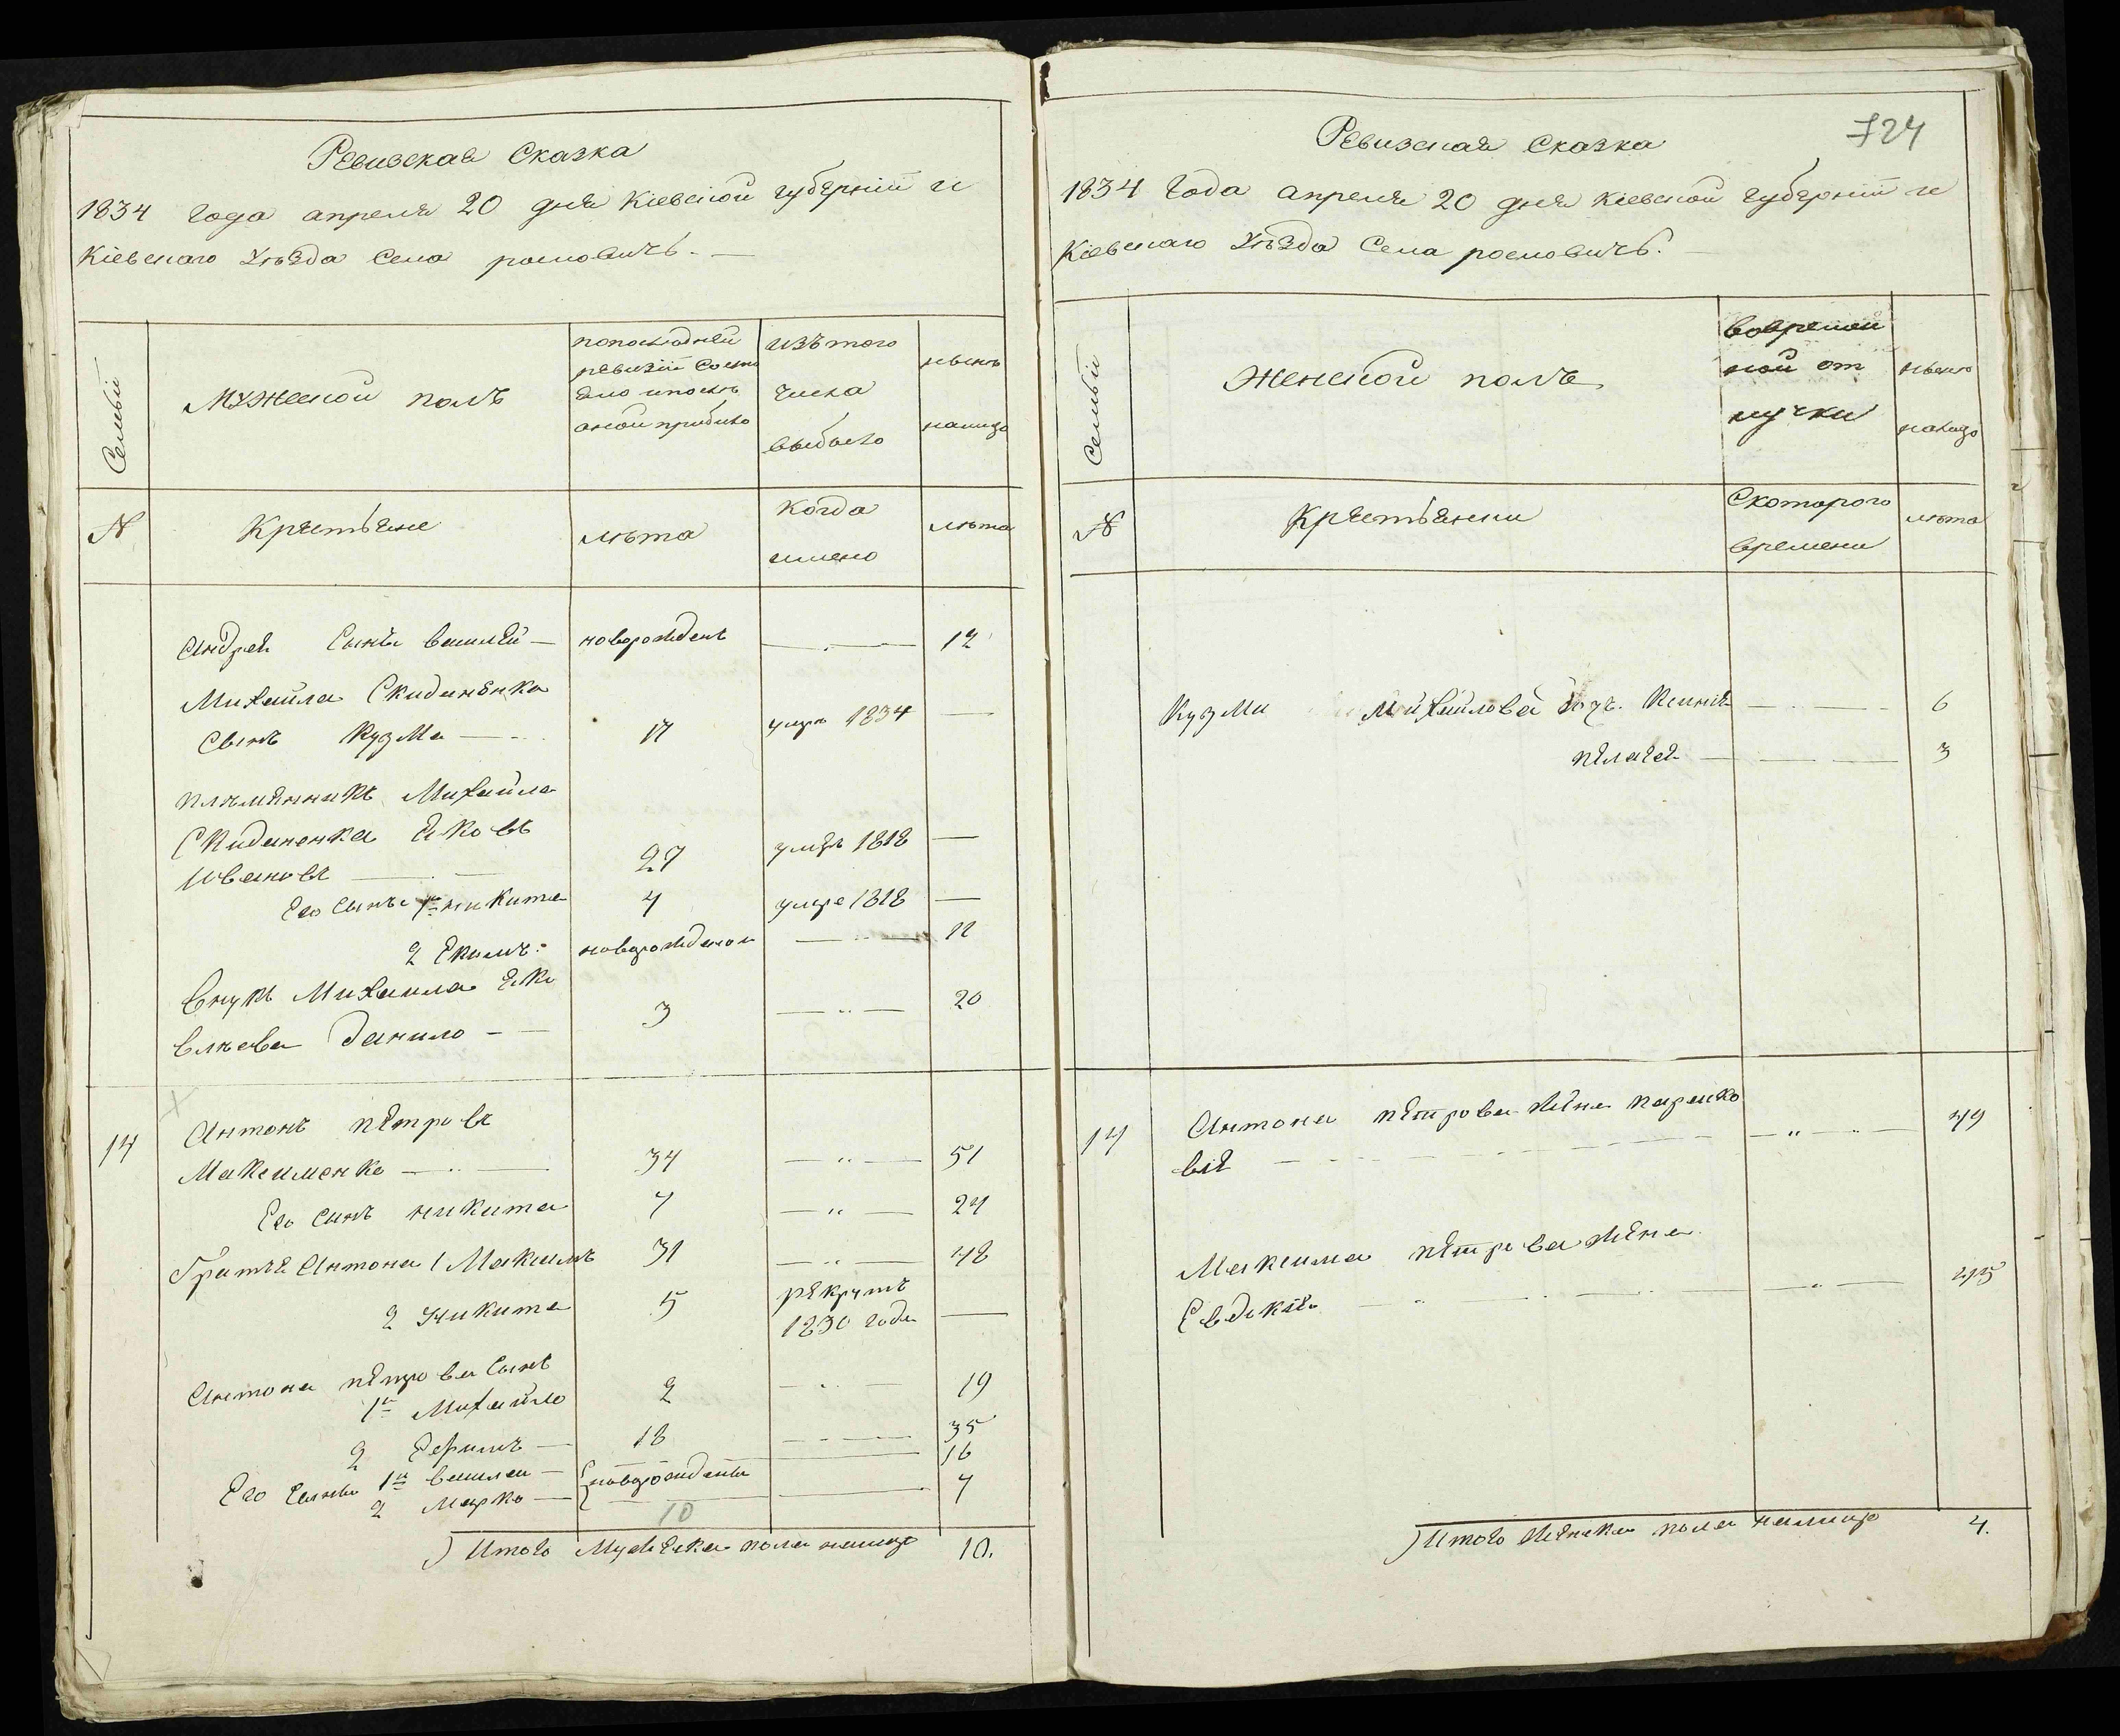 Ревизская Сказка
1834 года апреля 20 дня Кіевской губерніи и
Кіевскаго Уъзда Села росновичъ. —
Семьи
Мужеской полъ
попоследней
ревизіи состо
яло ипослъ
оной прибыло
изътого
числа
выбыло
нынъ
налицо
№
Крестьяне
лъта
когда
имено
лъта
Андрея Сынъ Василій — новорожденъ — 12
Михайла Скиданенка
Сынъ Кузма — 17 умръ 1834 —
племянникъ Михайла
Скиданенка Яковъ
Ивановъ — 27 умръ 1818 —
Его Сынъ 1й никита 4 умре 1818 —
2 Екимъ новорожденои — 11
Внукъ Михаила Яко
влъева Данило — 3 — " — 20
14 Антонъ петровъ
Максименко — 34 — " — 51
Его сынъ никита 7 — " — 24
Братья Антона 1 Максимъ 31 — " — 48
2 Никита 5 рекрутъ
1830 года —
Антона петрова Сынъ
1й Михайло 2 — " — 19
2 Ефимъ — 18 — 35
Его Сынови 1й василеи — новорождены — 16
2 Марко — — 7
10
Итого Мужеска пола налицо 10.
724
Ревизская Сказка
1834 Года апреля 20 дня Кіевской губерніи и
Кіевскаго Уъзда Села росновичъ.
Семьи
Женской полъ
вовремен
ной от
лучки
нынъ
налицо
№
Крестьянки
Скоторого
времени
лъта
Кузми Михайлова дочь. Ксиния — 6
пелагея — 3
14 Антона петрова жена параско
вія — " — 49
Максима петрова жена
Евдокія — " — 45
Итого женска пола налицо 4.